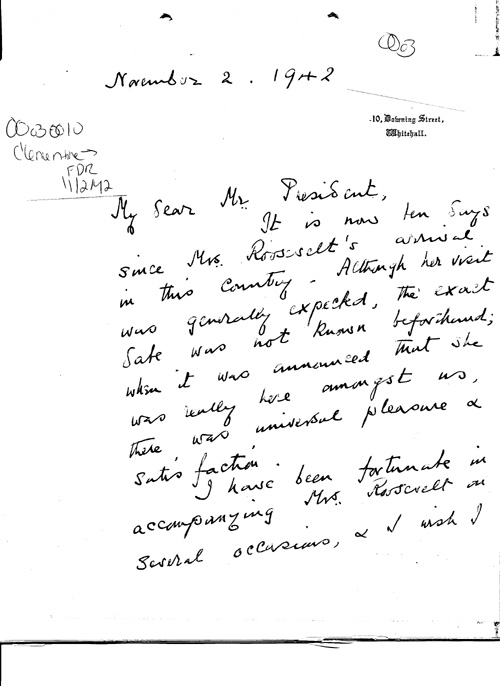 0003
November 2. 1942
10, Downing Street,
Whitehall.
0030010
Clementine →
FDR
11/2/42
My dear Mr. President,
It is now ten days
since Mrs. Roosevelt's arrival
in this country. Although her visit
was generally expected, the exact
date was not known beforehand;
when it was announced that she
was really here amongst us,
there was universal pleasure &
satisfaction.
I have been fortunate in
accompanying Mrs. Roosevelt on
several occasions, & I wish I